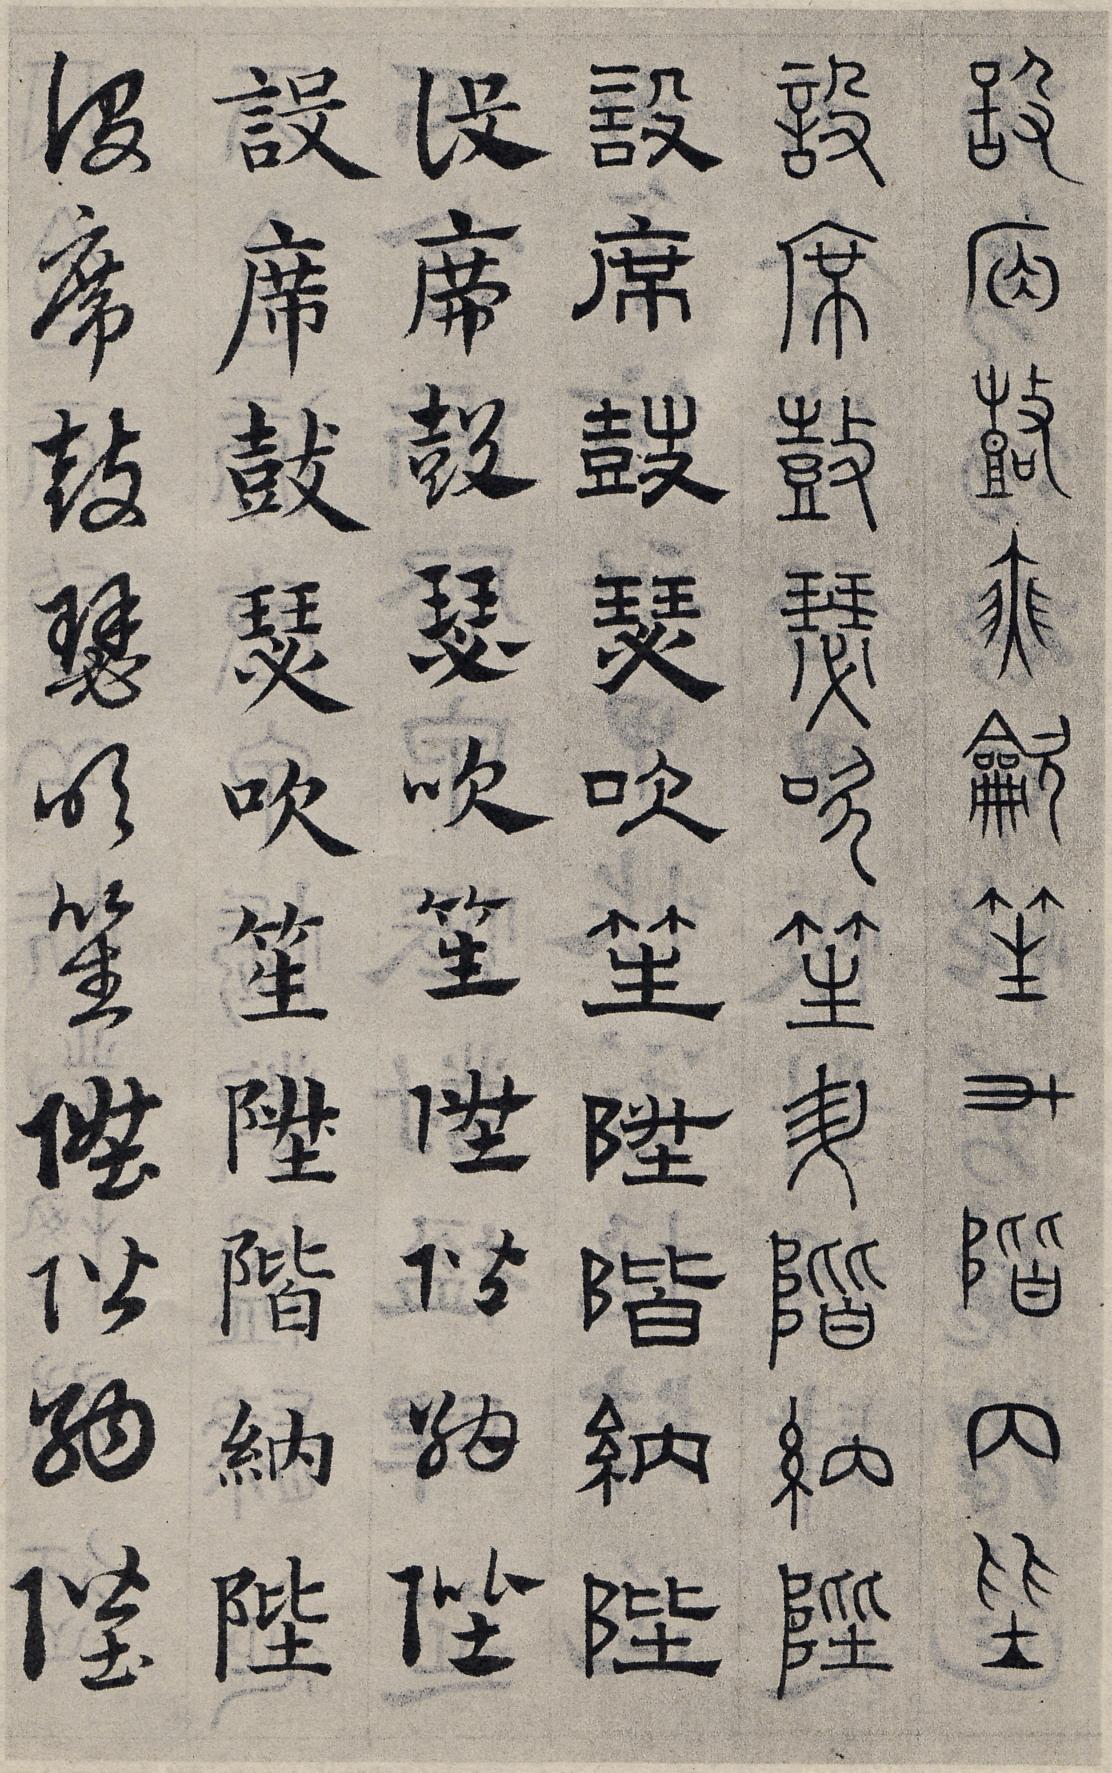 設席鼓瑟龡笙升階內陛
設席鼓瑟吹笙升階納陛
設席鼓瑟吹笙陞階納陛
設席鼓瑟吹笙陞階納陛
設席鼓瑟吹笙陞階納陛
設席鼓瑟吹笙陞階納陛